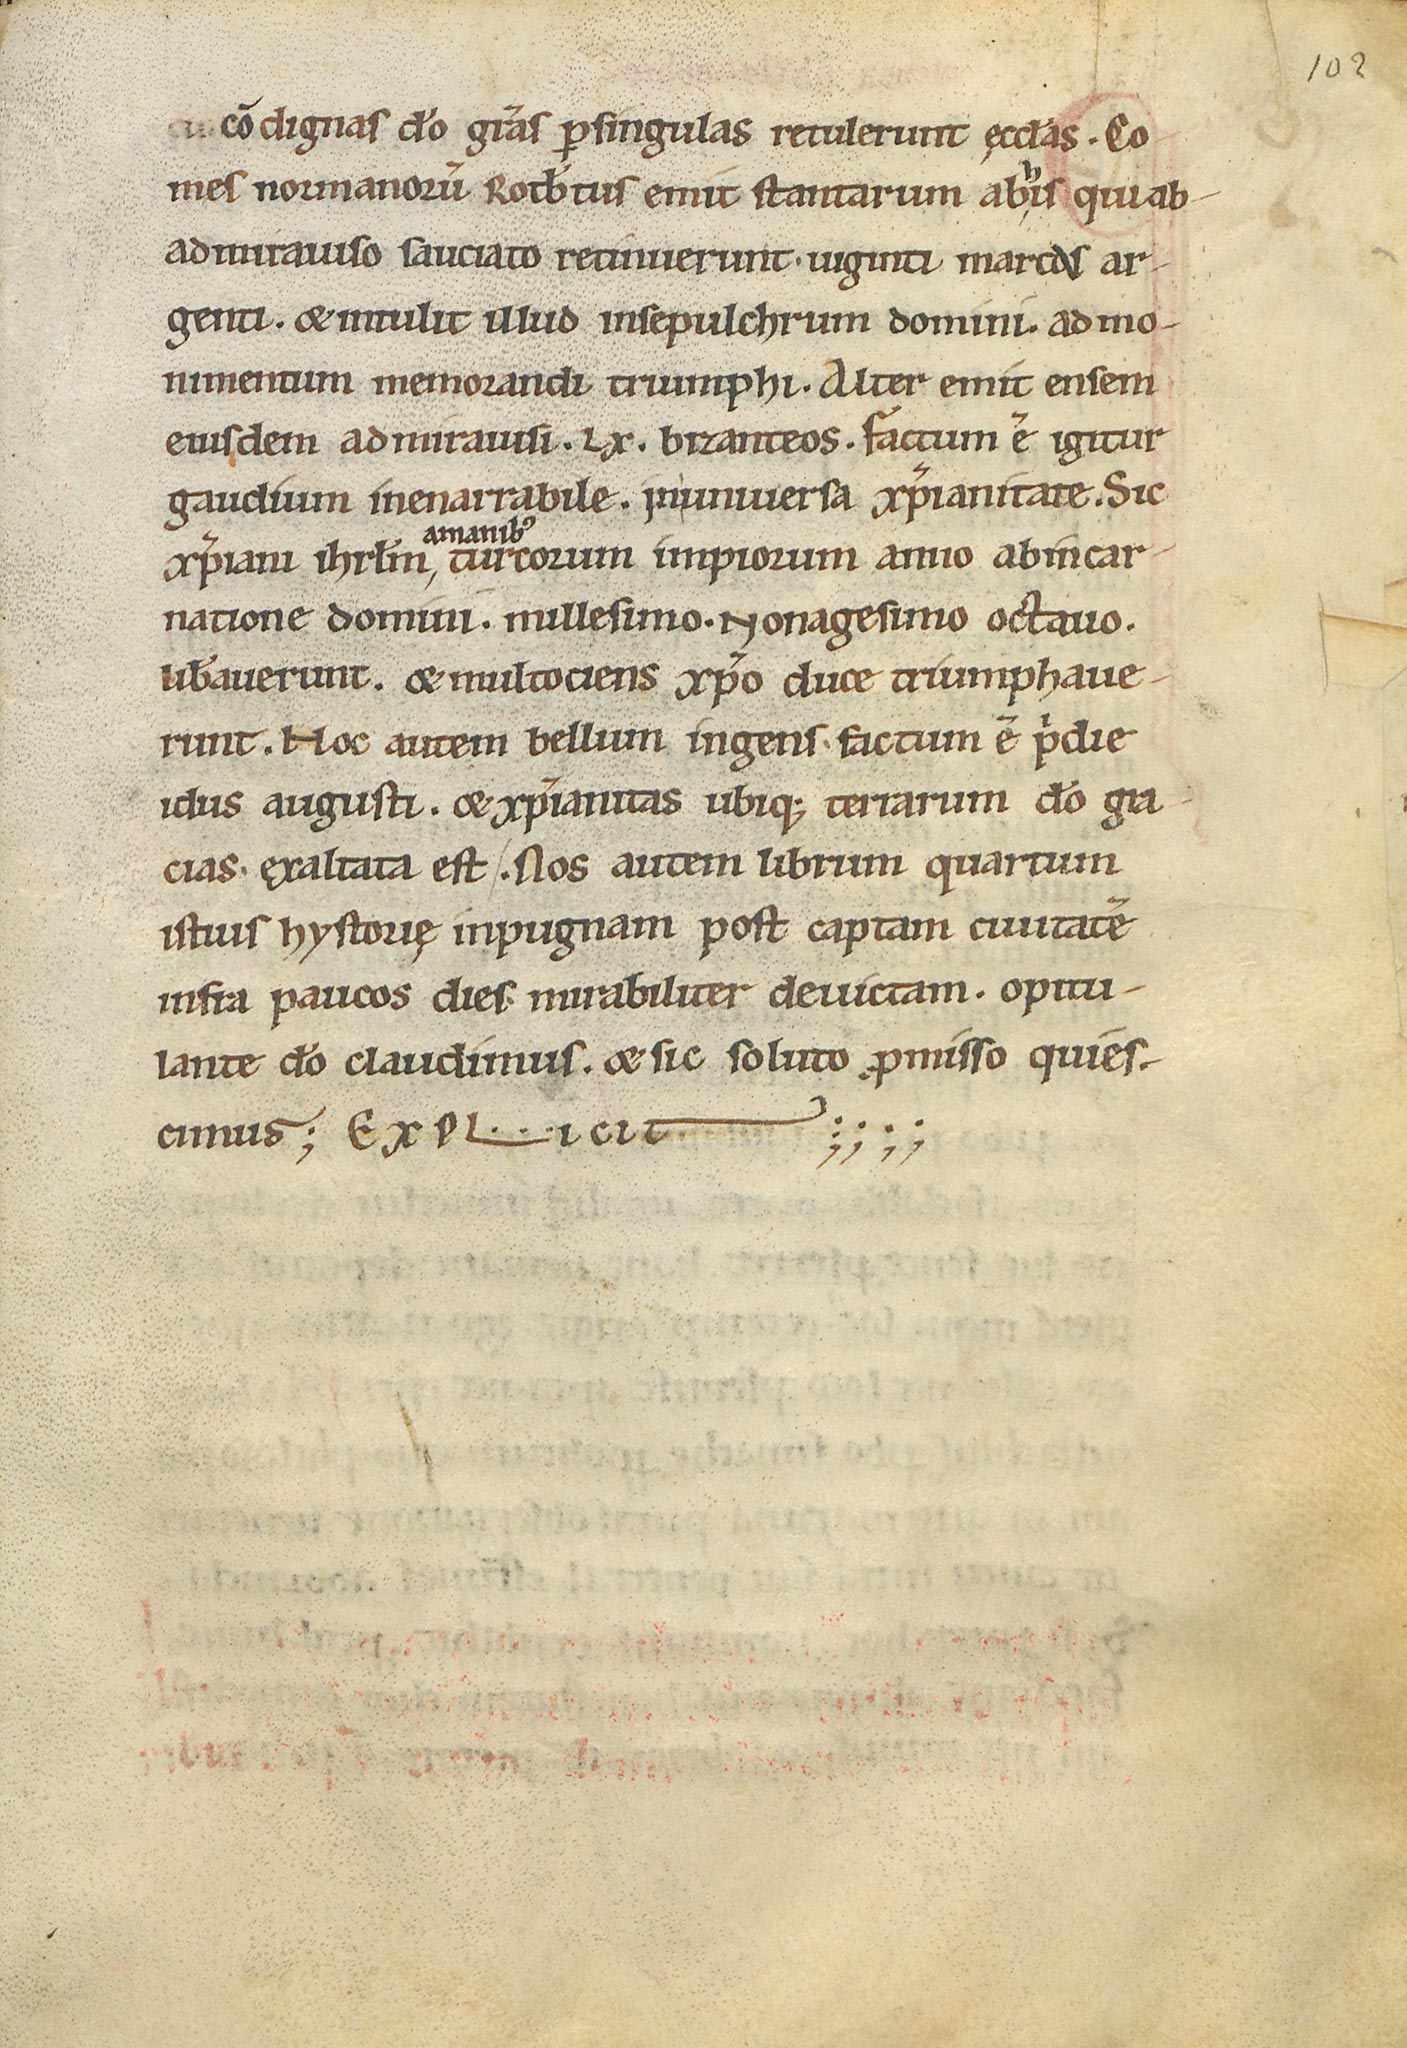 102
cõ dignas dõ grãs ꝑsingulas retulerunt ęccłas. Co-
mes normanorũ Rotb̃tus emit stantarum abhis qui ab-
admirauiso sauciato retinuerunt. uiginti marcis ar-
genti. & intulit illud insepulchrum domini. ad mo-
nimentum memorandi triumphi. Alter emit ensem
eiusdem admirauisi. Lx. bizanteos. factum ẽ igitur
gaudium inenarrabile. inuniuersa xp̃ianitate. Sic
amanib;
xp̃iani ihrl̃m, turcorum impiorum anno abincar-
natione domini. millesimo. Nonagesimo octauo.
lib̃auerunt. & multociens xp̃o duce triumphaue-
runt. Hoc autem bellum ingens. factum ẽ p̃die
idus augusti. & xp̃ianitas ubiq; terrarum dõ gra-
cias. exaltata est. Nos autem librum quartum
istius hystorię inpugnam post captam ciuitatẽ
infra paucos dies. mirabiliter deuictam. opitu-
lante dõ claudimus. & sic soluto ꝓmisso quies-
cimus; EXPL...icit